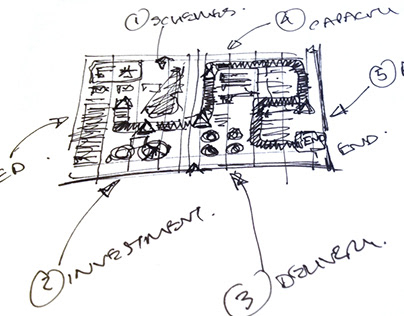 ① SCHEMES.
④ CAPACITY
⑤
ED.
END
END.
② INVESTMENT.
③ DELIVERY.